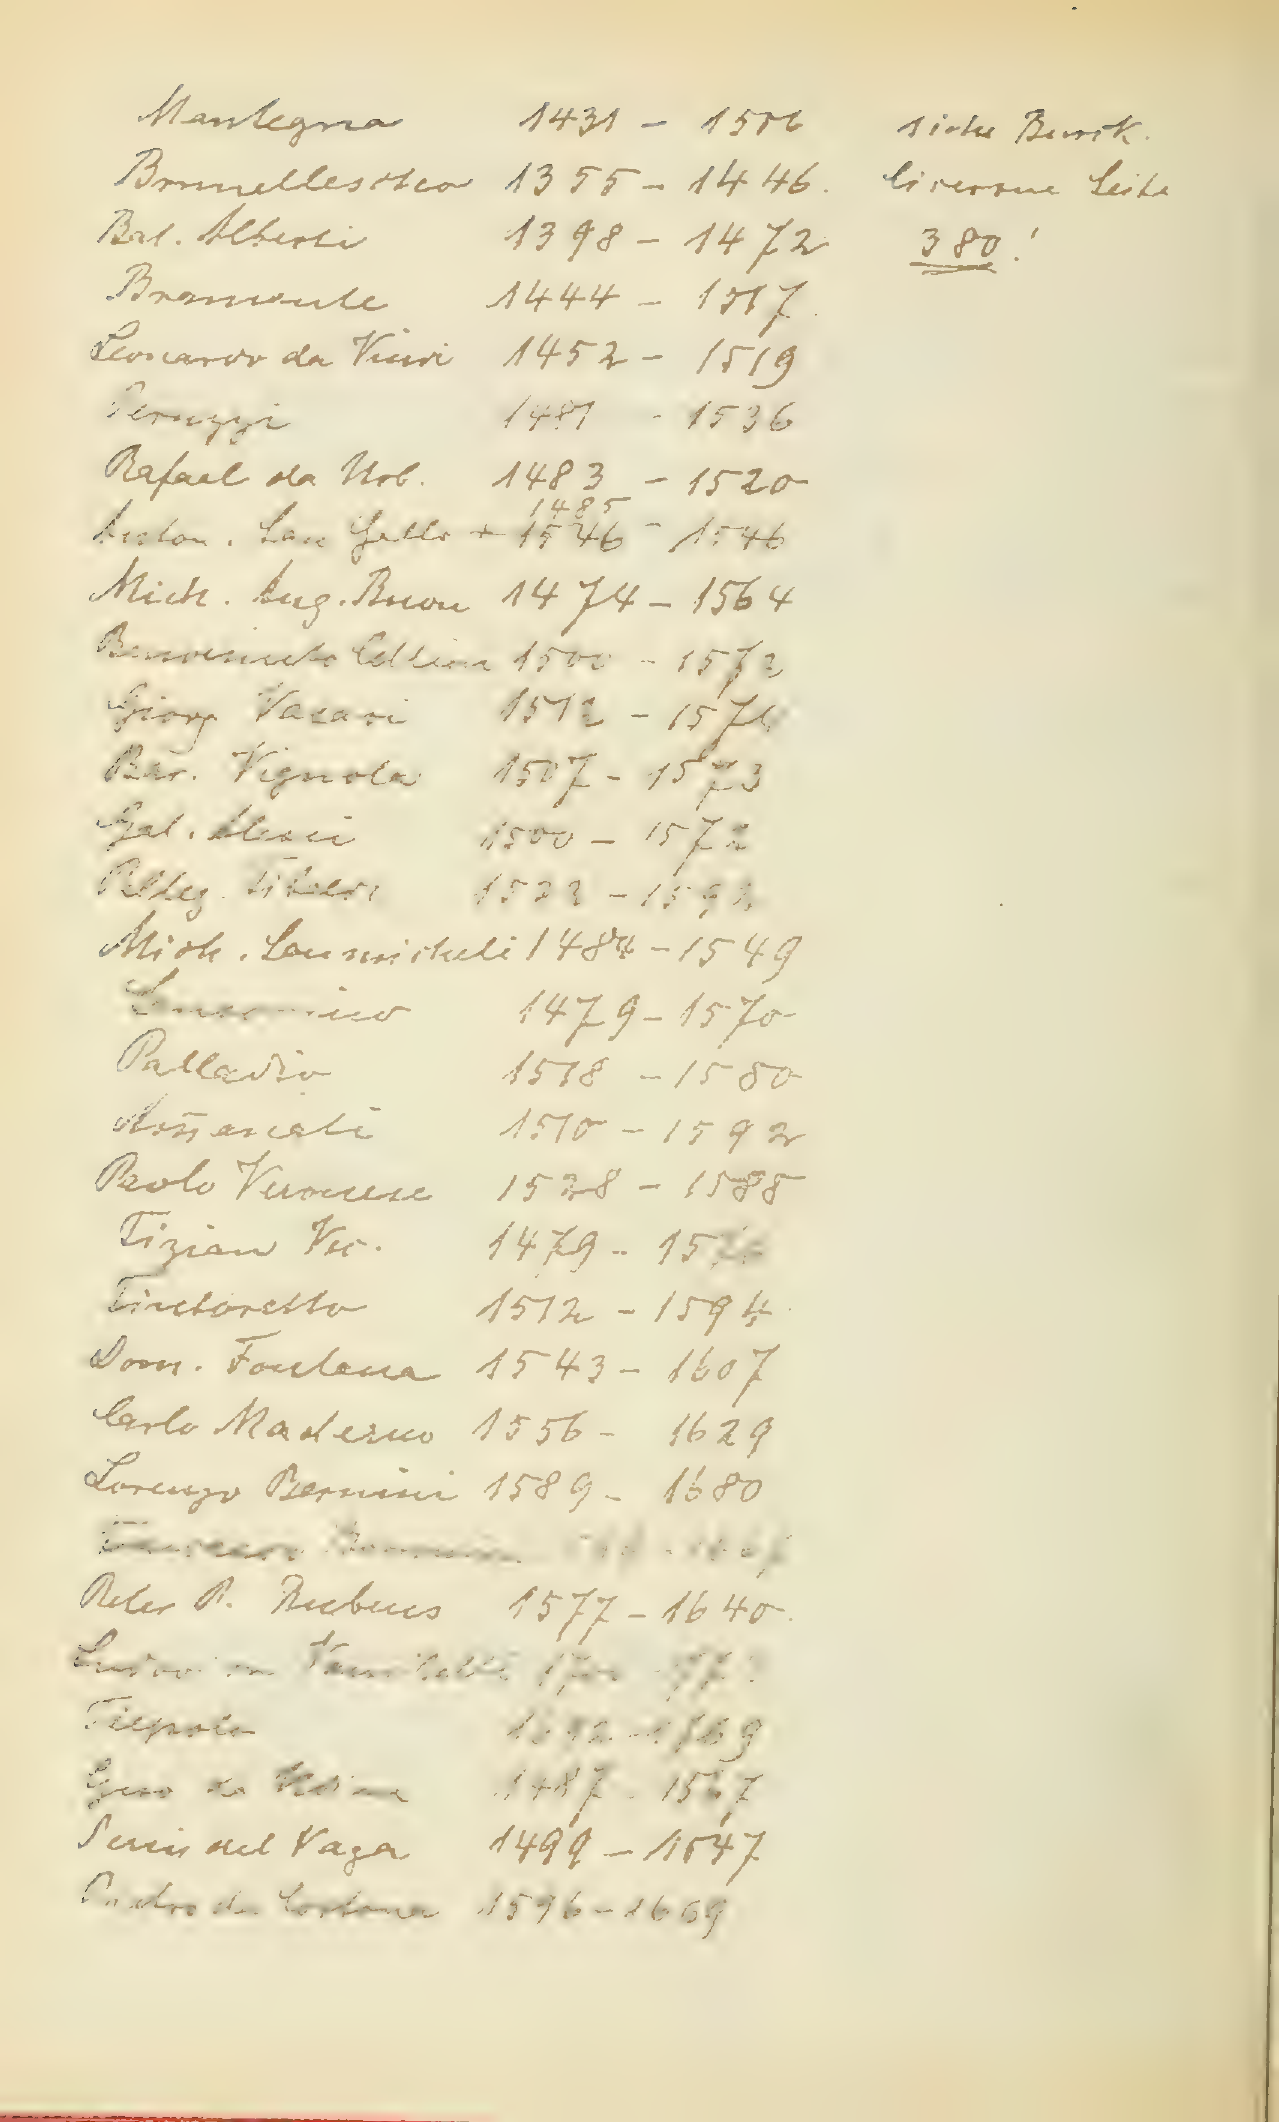 Mantegna 1431 – 1506
Brunellescheo 1355 – 1446.
Bat. Alberti 1398 – 1472
Bramante 1444 – 1517.
Leonardo da Vinci 1452 – 1519
Peruzzi 1481 - 1536
Rafael da Urb. 1483 – 1520
1485
Anton. San Gallo + 1546 – 1546
Mich. Ang. Buon 1474 – 1564
Benvenuto Cellini 1500 – 1572
Giorg Vasari 1512 – 1574
Bar. Vignola 1507 – 1573
Gal. Alessi 1500 – 1572
Pelleg. Tibaldi 1522 – 1592
Mich. Sanmicheli 1484 – 1549
1479 – 1570
Palladio 1518 – 1580
Ammanati 1510 – 1592
Paolo Veronese 1528 – 1588
Tizian Vec. 1479 – 1576
Tintoretto 1512 – 1594.
Dom. Fontana 1543 – 1607
Carlo Maderno 1556 – 1629
Lorenzo Bernini 1589 – 1680
Peter P. Rubens 1577 – 1640.
Tiepolo 1692 – 1769
da Udine 1487 – 1567
Perin del Vaga 1499 – 1547
Pietro da Cortona 1596 – 1669
siehe Burck.
Cicerone Seite
380!